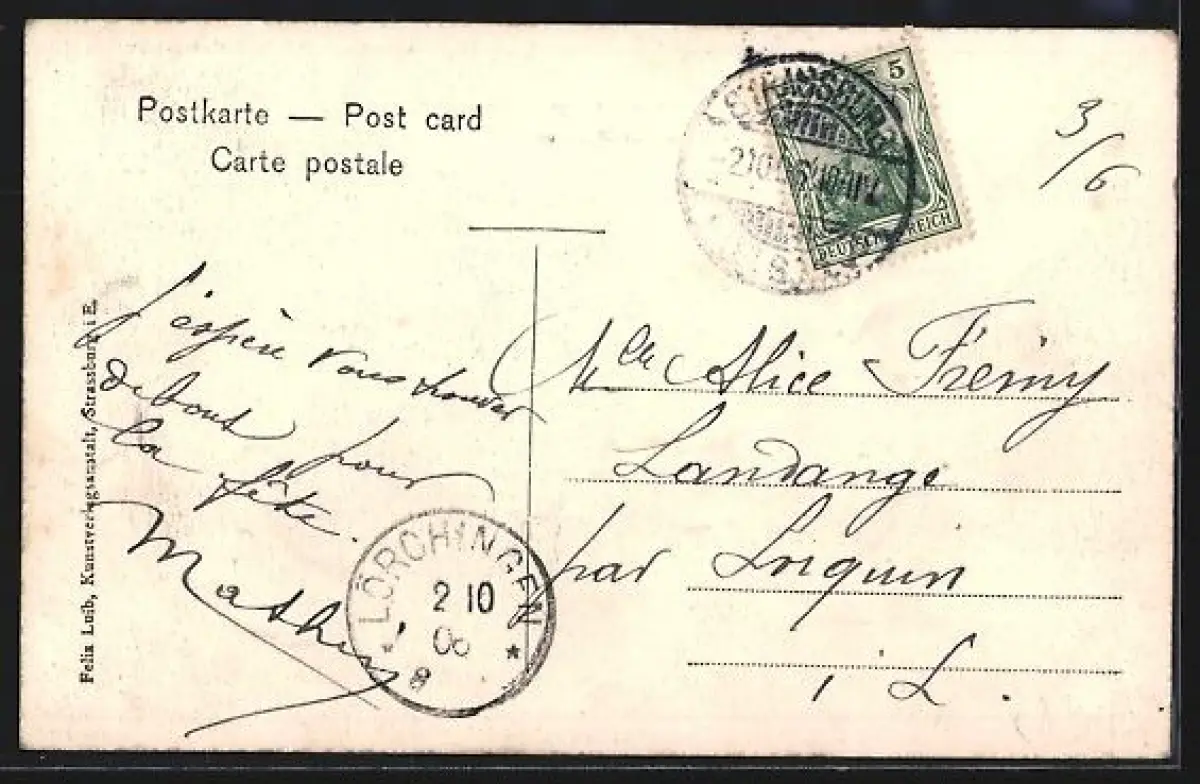 Postkarte — Post card
Carte postale
5
DEUTSCHES REICH
3/6
j'espère vous trouver
debout pour
la fête.
Mathis
Mlle Alice Frémy
Landange
par Lorquin
i L.
LÖRCHINGEN
2 10
06
Felix Luib, Kunstverlagsanstalt, Strassburg i E.